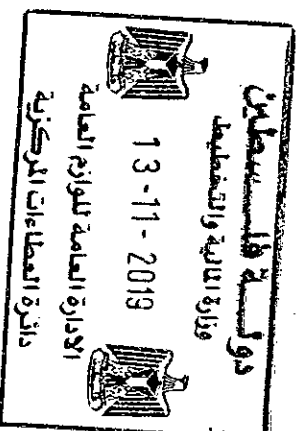 دولة فلسطين
وزارة المالية والتخطيط
13-11-2019
الإدارة العامة للوازم العامة
دائرة العطاءات المركزية